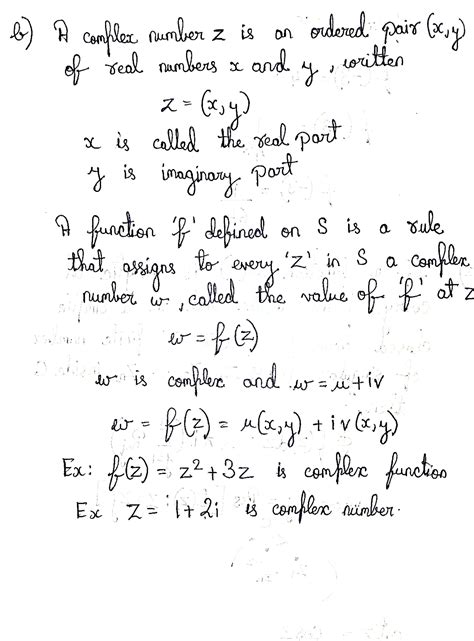 b) A complex number z is an ordered pair (x,y)
of real numbers x and y, written
z = (x,y)
x is called the real part.
y is imaginary part
A function 'f' defined on S is a rule
that assigns to every 'z' in S a complex
number w, called the value of 'f' at z
w = f(z)
w is complex and w = u + iv
w = f(z) = u(x,y) + i v(x,y)
Ex: f(z) = z² + 3z is complex function
Ex z = 1 + 2i is complex number.